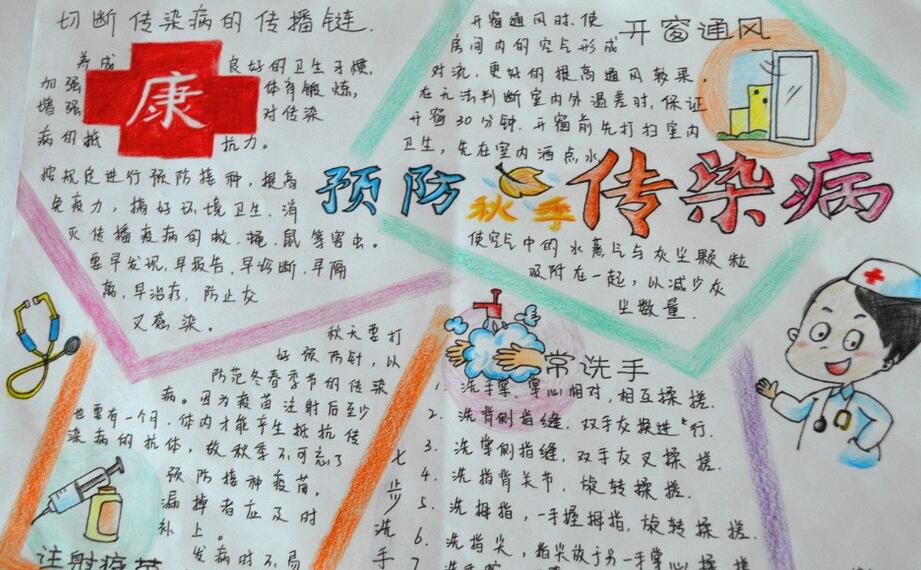 切断传染病的传播链.
养成 良好的卫生习惯,
加强 体育锻炼,
增强 对传染
病的抵 抗力。
康
按规定进行预防接种,提高
免疫力,搞好环境卫生.消
灭传播疫病的蚊、蝇、鼠等害虫。
要早发现,早报告,早诊断,早隔
离,早治疗,防止交
叉感染。
开窗通风
开窗通风时,使
房间内的空气形成
对流,更好的提高通风效果,
在无法判断室内外温差时,保证
开窗30分钟.开窗前先打扫室内
卫生,先在室内洒点水
使空气中的水蒸气与灰尘颗粒
吸附在一起,以减少灰
尘数量.
预防秋季传染病
秋天要打
好预防针,以
防范冬春季节的传染
病。因为疫苗注射后至少
也要有一个月,体内才能产生抵抗传
染病的抗体,故秋季不可忘了
预防接种疫苗。
漏掉者应及时
补上。
注射疫苗
发病时不易
常洗手
七步洗手
1.洗手掌,掌心相对,相互揉搓.
2.洗背侧指缝,双手交换进行.
3.洗掌侧指缝,双手交叉揉搓.
4.洗指背关节,旋转揉搓.
5.洗拇指,一手握拇指,旋转揉搓.
6.洗指尖,指尖放于另一手掌心揉搓
7.